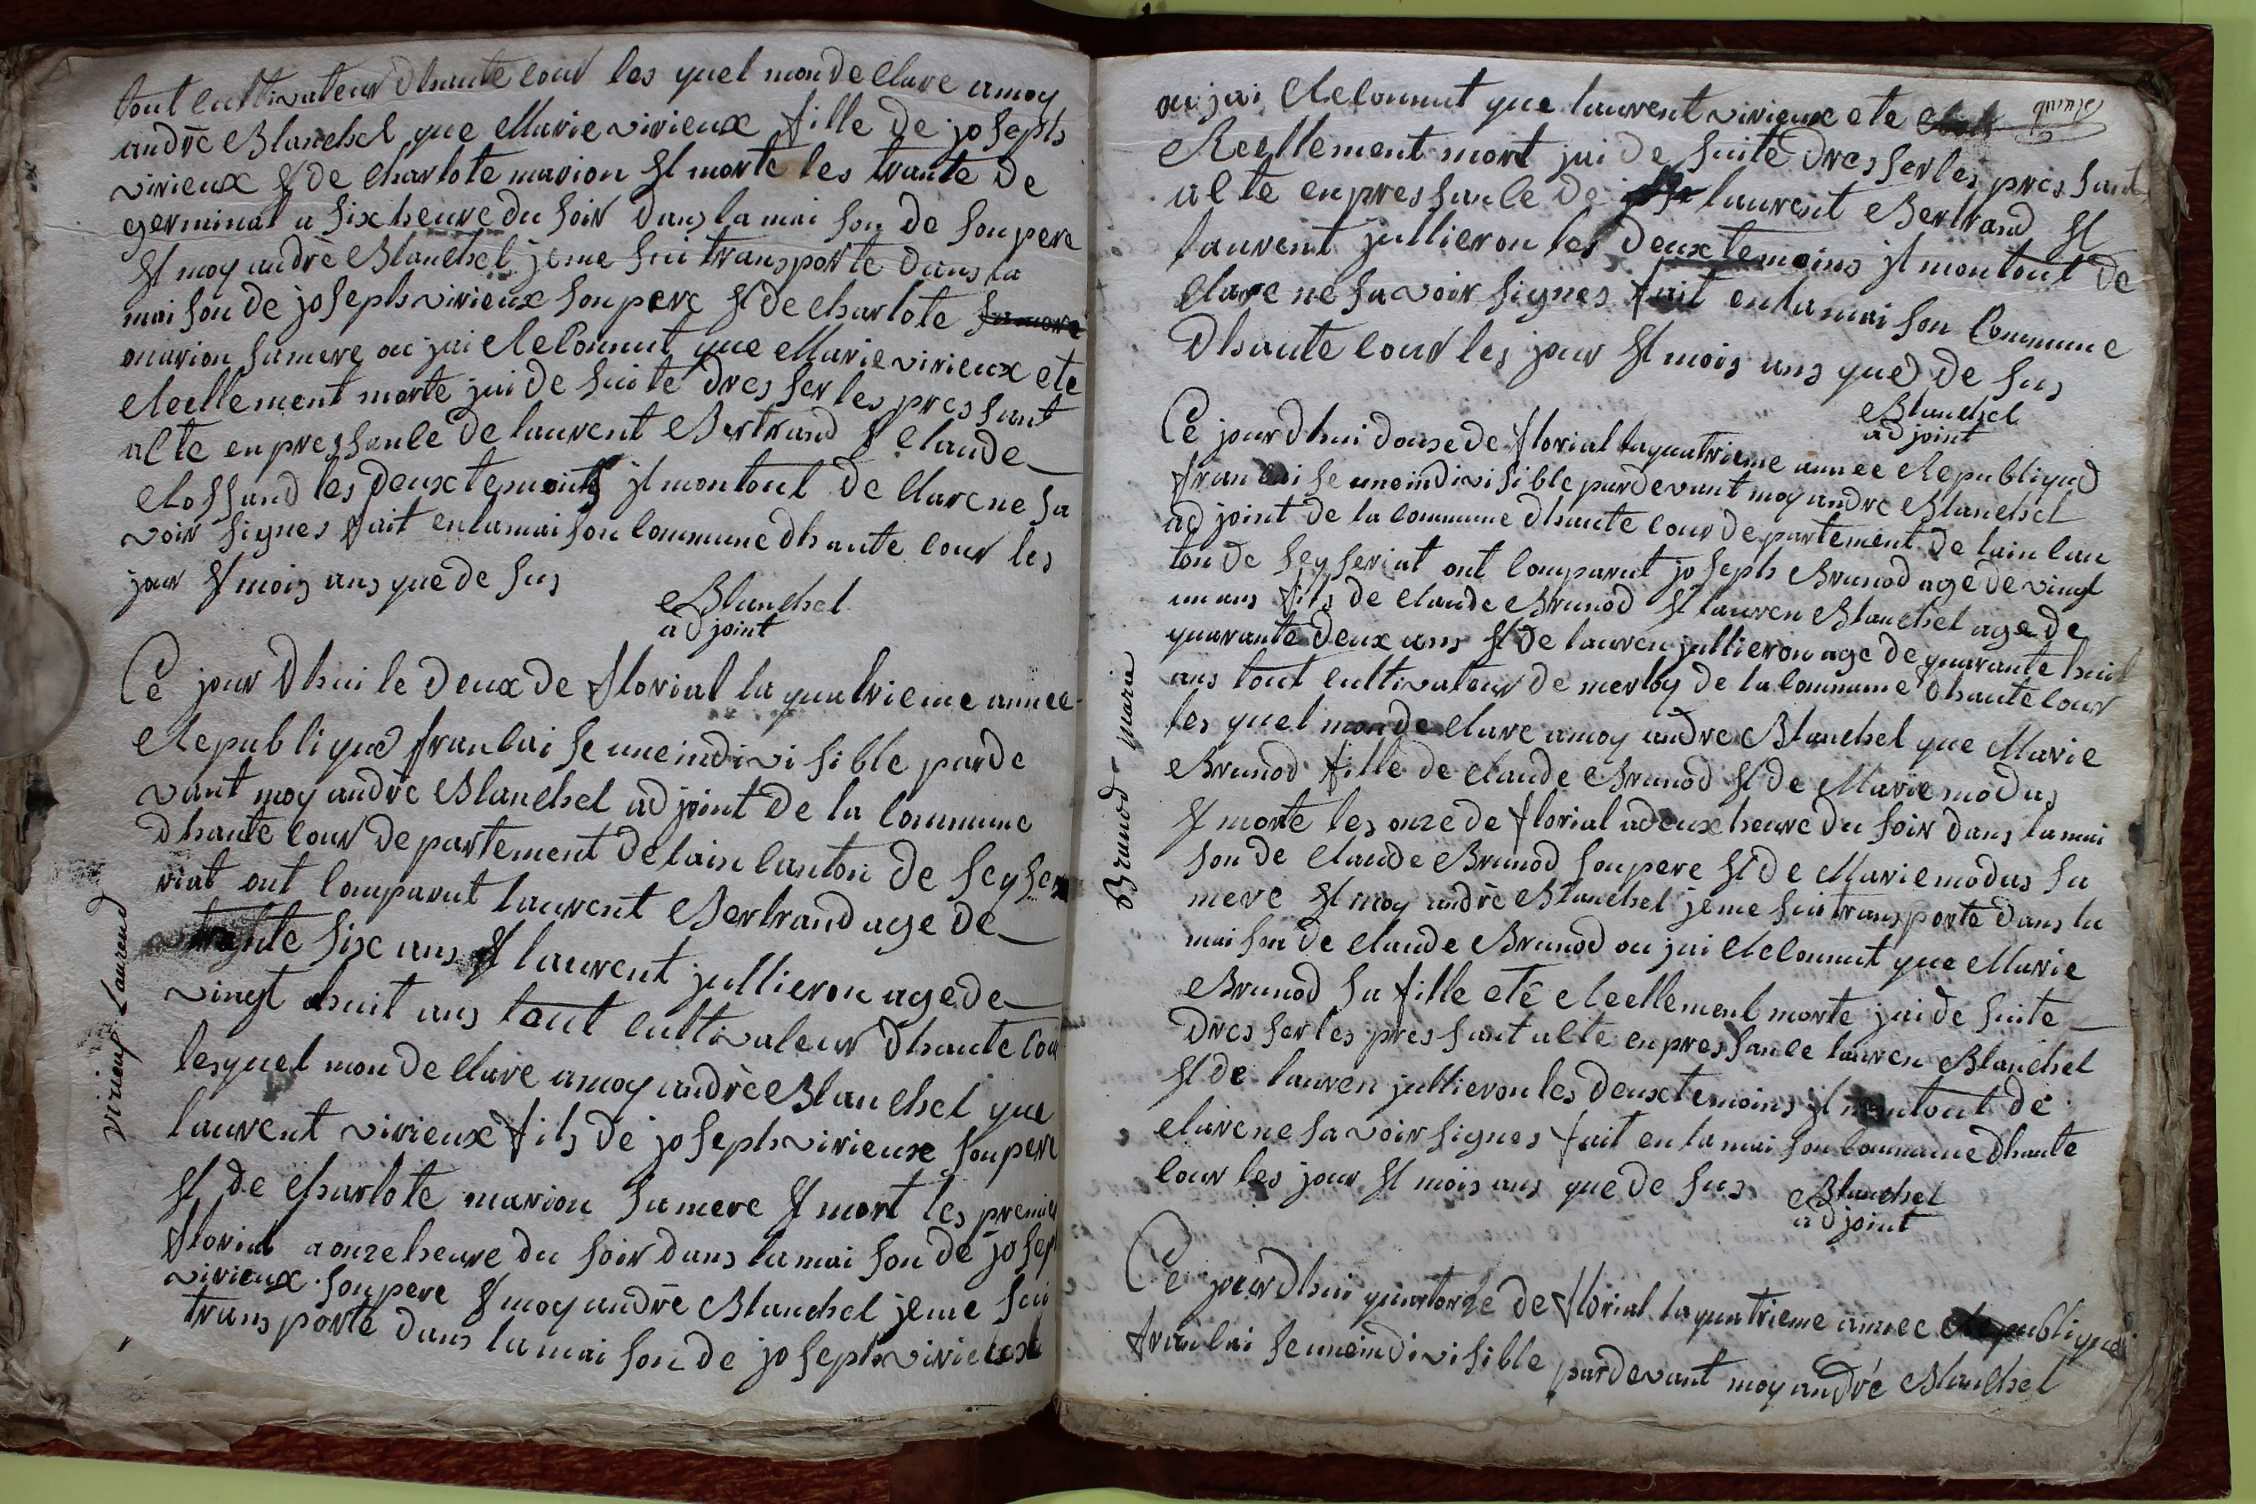 tout cultivateur dhaute cour les quel mon de clare a moy
andrè Blanchel que Marie virieux fille de joseph
virieux et de charlote marion et morte les trante de
germinal a six heure du soir dans la mai son de son pere
et moy andrè Blanchel je me sui transporte dans la
mai son de joseph virieux son pere et de charlote sa mere
marion sa mere ou jai Reconnut que Marie virieux ete
Reellement morte jai de suite dres ser les pres sant
acte en pres sance de laurent Bertrand et claude
Rossand les deux temoins il mon tout de clare ne sa
voir signes fait en la mai son commune dhaute cour les
jour et mois ans que de sus
Blanchel
ad joint
Ce jour dhui le deux de florial la quatrieme annee
Republique francai se une indivi sible par de
vant moy andrè Blanchel ad joint de la commune
dhaute cour departement de lain canton de seyse
riat ont comparut laurent Bertrand age de
trante six ans et laurent jullieron age de
vingt huit ans tout cultivateur dhaute cou
les quel mon de clare a moy andrè Blanchel que
laurent virieux fils de joseph virieux son pere
et de charlote marion sa mere et mort les premie
florial a onze heure du soir dans la mai son de josep
virieux son pere et moy andrè Blanchel je me sui
transporte dans la mai son de joseph virieux
virieux laurend
ou jai Reconnut que laurent virieux ete
quinze
Reellement mort jai de suite dres ser les pres sant
acte en pres sance de laurent Bertrand et
laurent jullieron les deux temoins il mon tout de
clare ne sa voir signes fait en la mai son commune
dhaute cour les jour et mois ans que de sus
Blanchel
ad joint
Ce jour dhui douze de florial la quatrieme annee Republique
francai se une indivi sible par devant moy andre Blanchel
ad joint de la commune dhaute cour departement de lain can
ton de seyseriat ont comparut joseph Brunod age de vingt
un ans fils de claude Brunod et lauren Blanchel age de
quarante deux ans et de lauren jullieron age de quarante huit
ans tout cultivateur de merloy de la commune dhaute cour
les quel mon de clare a moy andre Blanchel que Marie
Brunod fille de claude Brunod et de Marie modas
et morte les onze de florial a deux heure du soir dans la mai
son de claude Brunod son pere et de Marie modas sa
mere et moy andrè Blanchel je me sui transporte dans la
mai son de claude Brunod ou jai Reconnut que Marie
Brunod sa fille etê Reellement morte jai de suite
dres ser les pres sant acte en pres sance lauren Blanchel
et de lauren jullieron les deux temoins il mon tout de
clare ne sa voir signes fait en la mai son commune dhaute
cour les jour et mois ans que de sus
Blanchel
ad joint
Brunod marie
Ce jour dhui quatorze de florial la quatrieme annee Republique
francai se une indivi sible par devant moy andré Blanchel